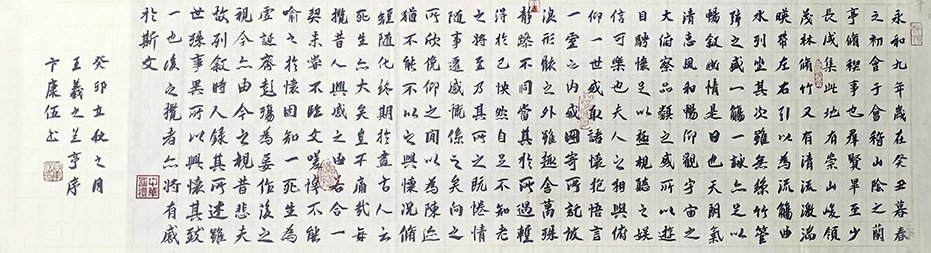 永和九年歲在癸丑暮春
之初會于會稽山陰之蘭
亭脩稧事也群賢畢至少
長咸集此地有崇山峻領
茂林脩竹又有清流激湍
暎帶左右引以為流觴曲
水列坐其次雖無絲竹管
弦之盛一觴一詠亦足以
暢敘幽情是日也天朗氣
清惠風和暢仰觀宇宙之
大俯察品類之盛所以遊
目騁懷足以極視聽之娛
信可樂也夫人之相與俯
仰一世或取諸懷抱悟言
一室之內或因寄所託放
浪形骸之外雖趣舍萬殊
靜躁不同當其欣於所遇蹔
得於己快然自足不知老
之將至及其所之既惓情
隨事遷感慨係之矣向之
所欣俛仰之間以為陳迹
猶不能不以之興懷況脩
短隨化終期於盡古人云
死生亦大矣豈不痛哉每
攬昔人興感之由若合一
契未嘗不臨文嗟悼不能
喻之於懷固知一死生為
虛誕齊彭殤為妄作後之
視今亦由今之視昔悲夫
故列敘時人錄其所述雖
世殊事異所以興懷其致
一也後之攬者亦將有感
於斯文
癸卯立秋之月
王羲之蘭亭序
卞康伍书